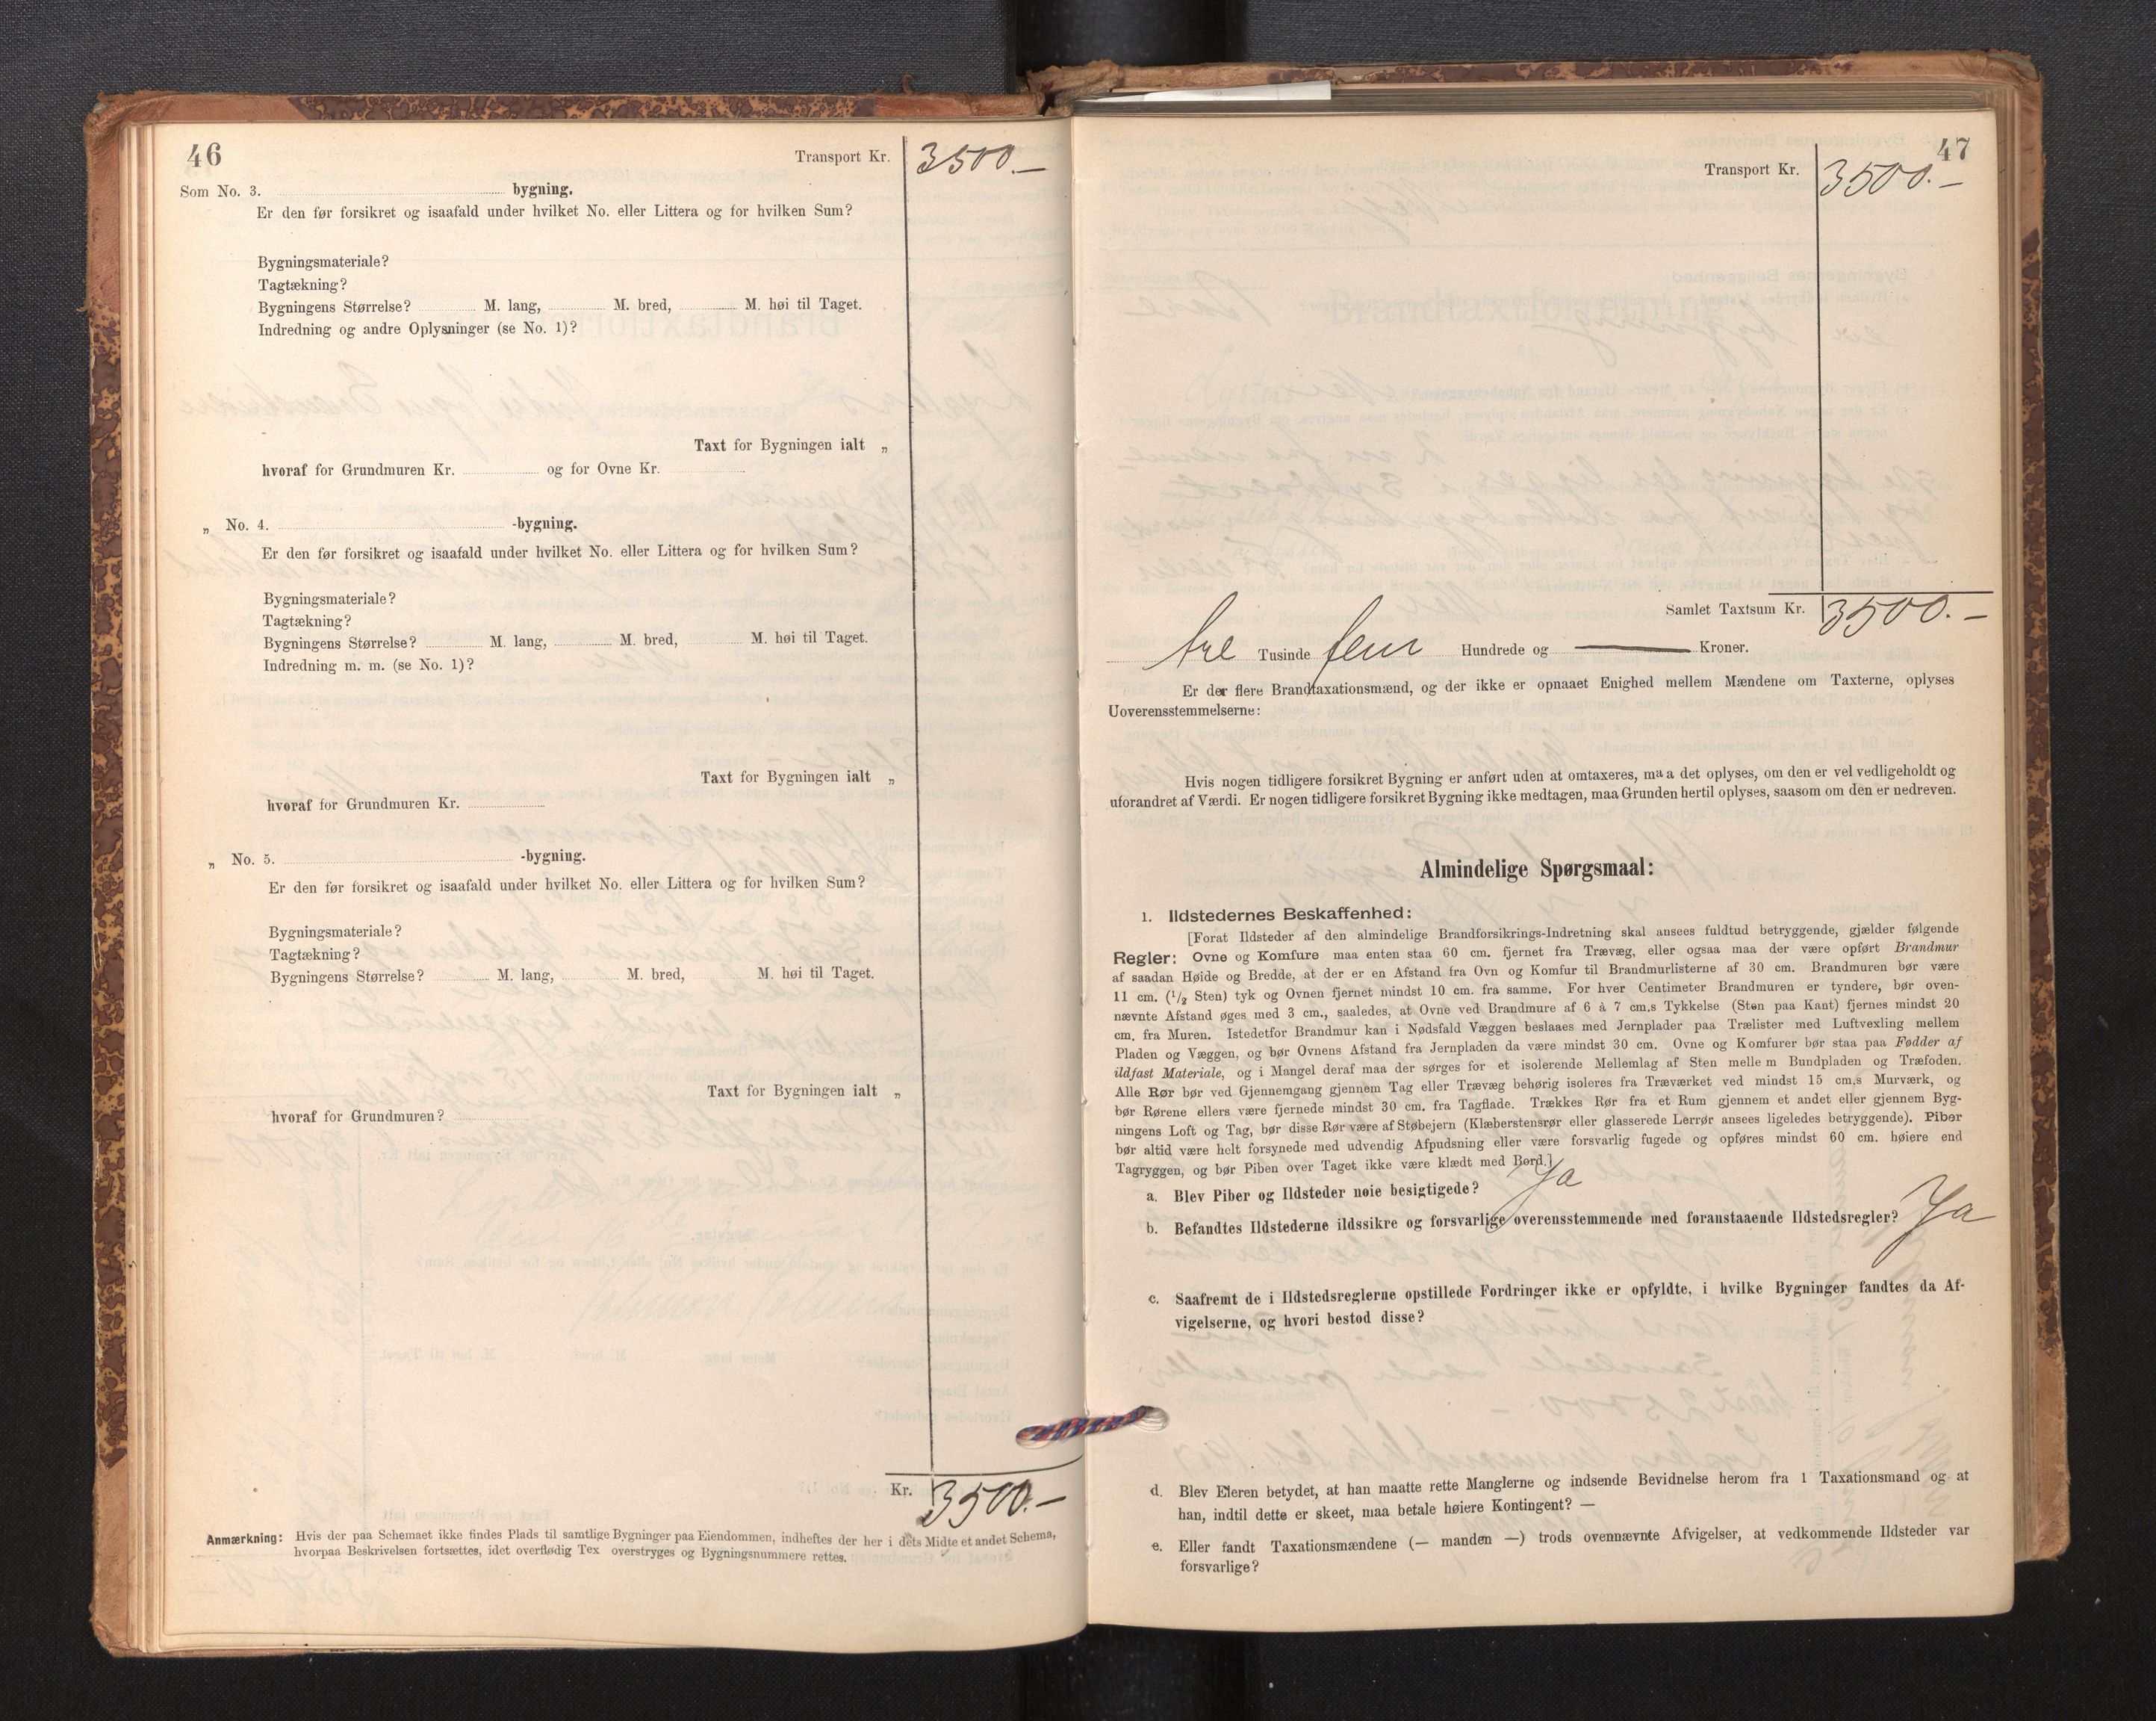 46
Transport Kr. 3500.—
Som No. 3. bygning.
Er den før forsikret og isaafald under hvilket No. eller Littera og for hvilken Sum?
Bygningsmateriale?
Tagtækning?
Bygningens Størrelse? M. lang, M. bred, M. høi til Taget.
Indredning og andre Oplysninger (se No. 1)?
Taxt for Bygningen ialt „
hvoraf for Grundmuren Kr. og for Ovne Kr.
„ No. 4. -bygning.
Er den før forsikret og isaafald under hvilket No. eller Littera og for hvilken Sum?
Bygningsmateriale?
Tagtækning?
Bygningens Størrelse? M. lang, M. bred, M. høi til Taget.
Indredning m. m. (se No. 1)?
Taxt for Bygningen ialt „
hvoraf for Grundmuren Kr.
„ No. 5. -bygning.
Er den før forsikret og isaafald under hvilket No. eller Littera og for hvilken Sum?
Bygningsmateriale?
Tagtækning?
Bygningens Størrelse? M. lang, M. bred, M. høi til Taget.
Taxt for Bygningen ialt „
hvoraf for Grundmuren?
Kr. 3500.—
Anmærkning: Hvis der paa Schemaet ikke findes Plads til samtlige Bygninger paa Eiendommen, indheftes der her i dets Midte et andet Schema,
hvorpaa Beskrivelsen fortsættes, idet overflødig Tex overstryges og Bygningsnummere rettes.
47
Transport Kr. 3500.—
Samlet Taxtsum Kr. 3500.—
tre Tusinde fem Hundrede og — Kroner.
Er der flere Brandtaxationsmænd, og der ikke er opnaaet Enighed mellem Mændene om Taxterne, oplyses
Uoverensstemmelserne:
Hvis nogen tidligere forsikret Bygning er anført uden at omtaxeres, maa det oplyses, om den er vel vedligeholdt og
uforandret af Værdi. Er nogen tidligere forsikret Bygning ikke medtagen, maa Grunden hertil oplyses, saasom om den er nedreven.
Almindelige Spørgsmaal:
1. Ildstedernes Beskaffenhed:
[Forat Ildsteder af den almindelige Brandforsikrings-Indretning skal ansees fuldtud betryggende, gjælder følgende
Regler: Ovne og Komfure maa enten staa 60 cm. fjernet fra Trævæg, eller ogsaa maa der være opført Brandmur
af saadan Høide og Bredde, at der er en Afstand fra Ovn og Komfur til Brandmurlisterne af 30 cm. Brandmuren bør være
11 cm. (1/2 Sten) tyk og Ovnen fjernet mindst 10 cm. fra samme. For hver Centimeter Brandmuren er tyndere, bør oven-
nævnte Afstand øges med 3 cm., saaledes, at Ovne ved Brandmure af 6 à 7 cm.s Tykkelse (Sten paa Kant) fjernes mindst 20
cm. fra Muren. Istedetfor Brandmur kan i Nødsfald Væggen beslaaes med Jernplader paa Trælister med Luftvexling mellem
Pladen og Væggen, og bør Ovnens Afstand fra Jernpladen da være mindst 30 cm. Ovne og Komfurer bør staa paa Fødder af
ildfast Materiale, og i Mangel deraf maa der sørges for et isolerende Mellemlag af Sten mellem Bundpladen og Træfoden.
Alle Rør bør ved Gjennemgang gjennem Tag eller Trævæg behørig isoleres fra Træværket ved mindst 15 cm.s Murværk, og
bør Rørene ellers være fjernede mindst 30 cm. fra Tagflade. Trækkes Rør fra et Rum gjennem et andet eller gjennem Byg-
ningens Loft og Tag, bør disse Rør være af Støbejern (Klæberstensrør eller glasserede Lerrør ansees ligeledes betryggende). Piber
bør altid være helt forsynede med udvendig Afpudsning eller være forsvarlig fugede og opføres mindst 60 cm. høiere end
Tagryggen, og bør Piben over Taget ikke være klædt med Bord.]
a. Blev Piber og Ildsteder nøie besigtigede? Ja
b. Befandtes Ildstederne ildssikre og forsvarlige overensstemmende med foranstaaende Ildstedsregler? Ja
c. Saafremt de i Ildstedsreglerne opstillede Fordringer ikke er opfyldte, i hvilke Bygninger fandtes da Af-
vigelserne, og hvori bestod disse?
d. Blev Eieren betydet, at han maatte rette Manglerne og indsende Bevidnelse herom fra 1 Taxationsmand og at
han, indtil dette er skeet, maa betale høiere Kontingent? —
e. Eller fandt Taxationsmændene (— manden —) trods ovennævnte Afvigelser, at vedkommende Ildsteder var
forsvarlige?